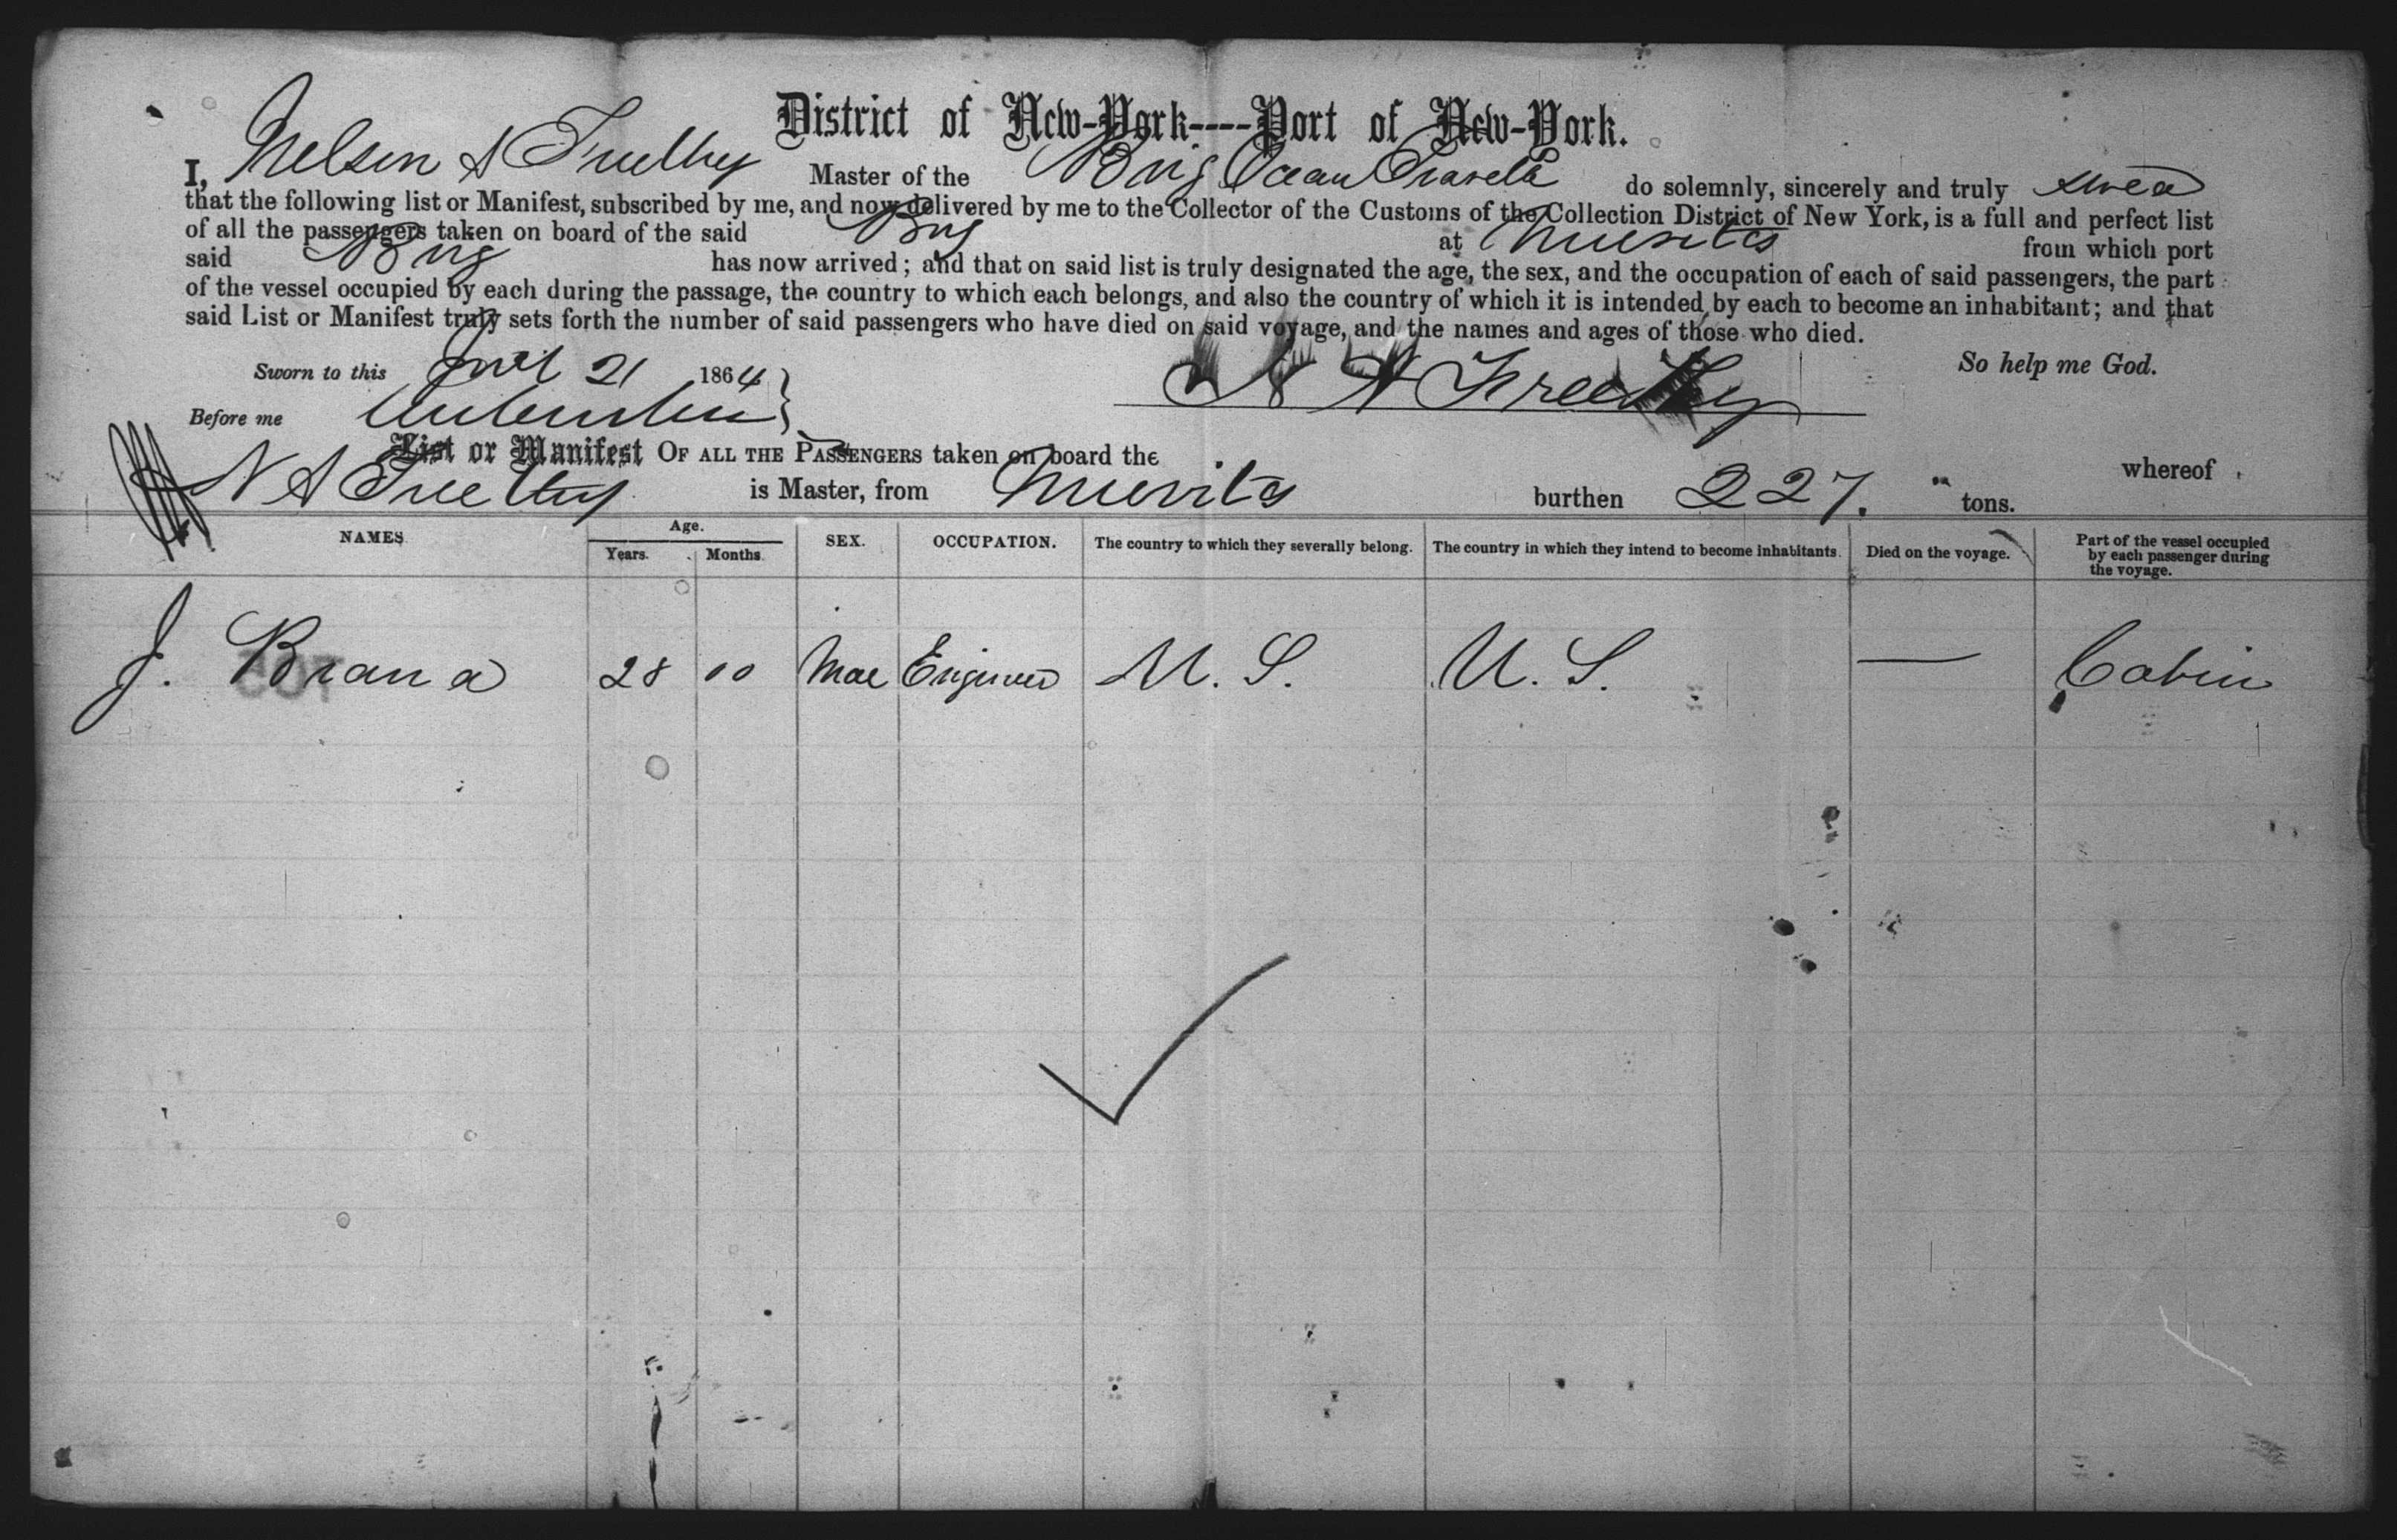 District of New-York----Port of New-York.
I, Nelson A Freethy Master of the Brig Ocean Traveler do solemnly, sincerely and truly swear
that the following list or Manifest, subscribed by me, and now delivered by me to the Collector of the Customs of the Collection District of New York, is a full and perfect list
of all the passengers taken on board of the said Brig at Nuevitas from which port
said Brig has now arrived; and that on said list is truly designated the age, the sex, and the occupation of each of said passengers, the part
of the vessel occupied by each during the passage, the country to which each belongs, and also the country of which it is intended by each to become an inhabitant; and that
said List or Manifest truly sets forth the number of said passengers who have died on said voyage, and the names and ages of those who died.
So help me God.
Sworn to this 21 1864
N A Freethy
Before me
List or Manifest OF ALL THE PASSENGERS taken on board the whereof
N A Freethy is Master, from Nuevitas burthen 227. tons.
NAMES Age. Years. Months. SEX. OCCUPATION. The country to which they severally belong. The country in which they intend to become inhabitants. Died on the voyage. Part of the vessel occupied by each passenger during the voyage.
J. Brana 28 10 Mae Engineer U. S. U. S. — Cabin